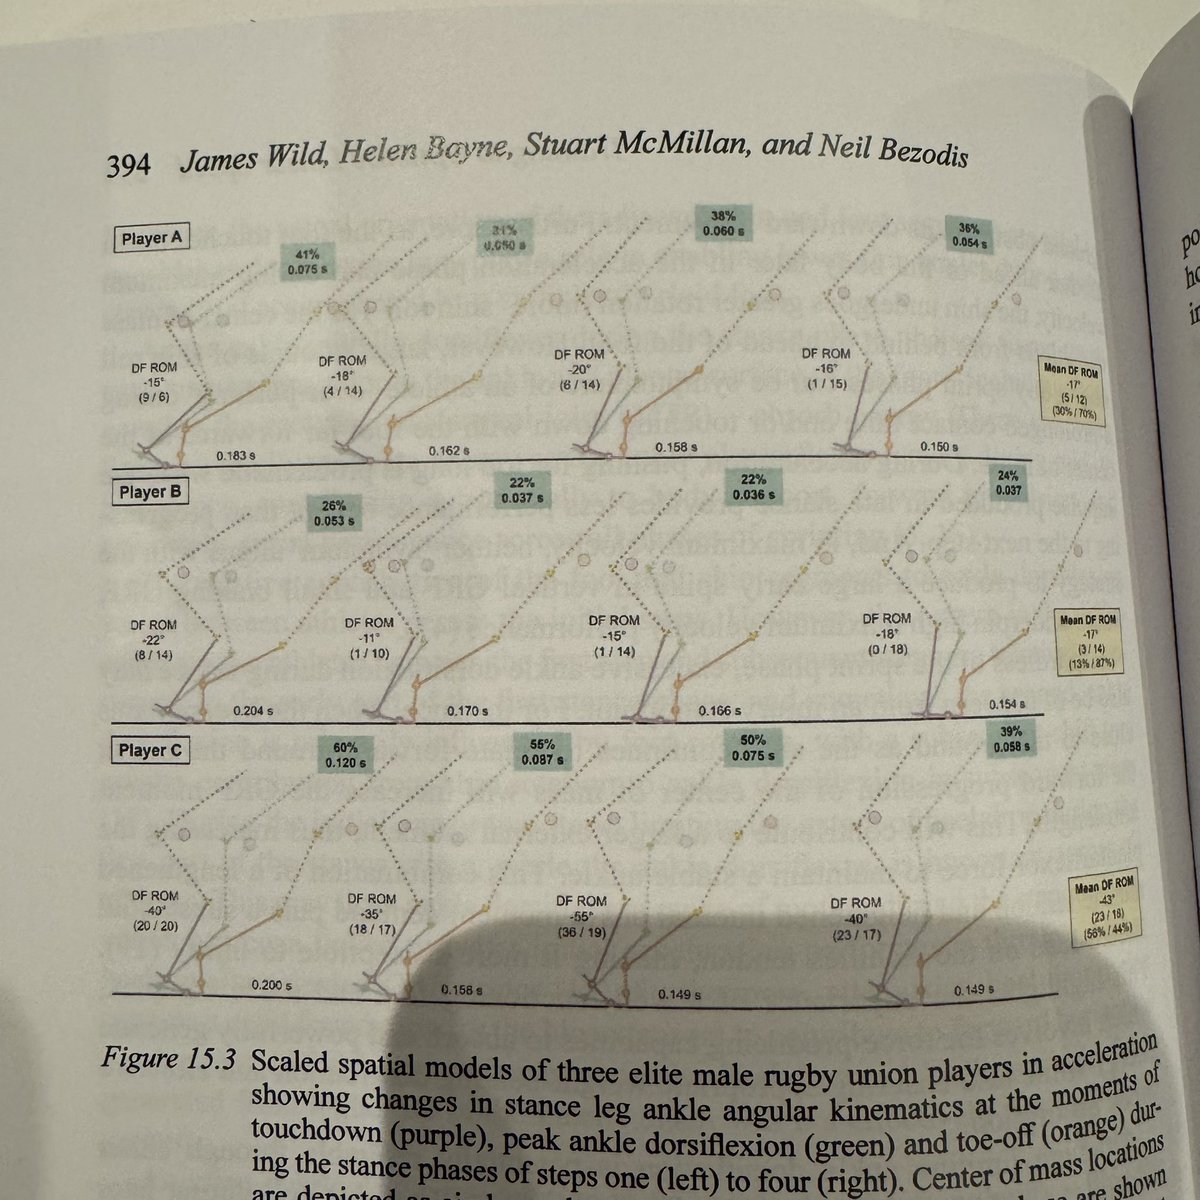 394 James Wild, Helen Bayne, Stuart McMillan, and Neil Bezodis
Player A
41%
0.075 s
31%
38%
0.060 s
36%
0.054 s
DF ROM
-15°
(9 / 6)
DF ROM
-18°
(4 / 14)
DF ROM
-20°
(6 / 14)
DF ROM
-16°
(1 / 15)
Mean DF ROM
-17°
(5 / 12)
(30% / 70%)
0.183 s
0.162 s
0.158 s
0.150 s
Player B
26%
0.053 s
22%
0.037 s
22%
0.036 s
24%
0.037
DF ROM
-22°
(8 / 14)
DF ROM
-11°
(1 / 10)
DF ROM
-15°
(1 / 14)
DF ROM
-18°
(0 / 18)
Mean DF ROM
-17°
(3 / 14)
(13% / 87%)
0.204 s
0.170 s
0.166 s
0.154 s
Player C
60%
0.120 s
55%
0.087 s
50%
0.075 s
39%
0.058 s
DF ROM
-40°
(20 / 20)
DF ROM
-35°
(18 / 17)
DF ROM
-55°
(36 / 19)
DF ROM
-40°
(23 / 17)
Mean DF ROM
-43°
(23 / 18)
(56% / 44%)
0.200 s
0.158 s
0.149 s
0.149 s
Figure 15.3 Scaled spatial models of three elite male rugby union players in acceleration
showing changes in stance leg ankle angular kinematics at the moments of
touchdown (purple), peak ankle dorsiflexion (green) and toe-off (orange) dur-
ing the stance phases of steps one (left) to four (right). Center of mass locations
are depicted as
are shown